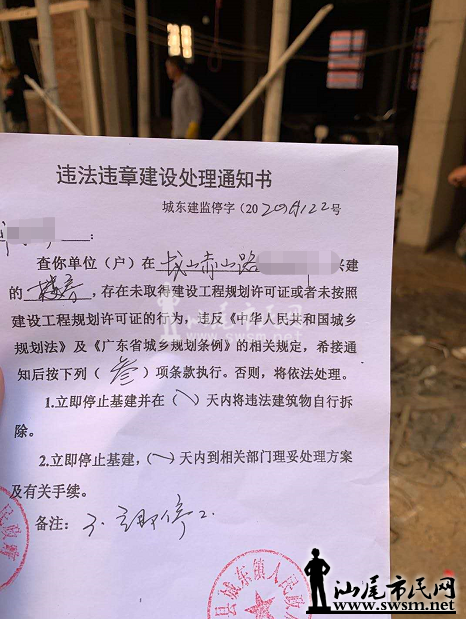 违法违章建设处理通知书
城东建监停字（20
号
：
查你单位（户）在 城山赤山路 建
的 楼房 ，存在未取得建设工程规划许可证或者未按照
建设工程规划许可证的行为，违反《中华人民共和国城乡
规划法》及《广东省城乡规划条例》的相关规定，希接通
知后按下列（叁）项条款执行。否则，将依法处理。
1.立即停止基建并在（\）天内将违法建筑物自行拆
除。
2.立即停止基建，（\）天内到相关部门理妥处理方案
及有关手续。
备注：3.立即停工.
县城东镇人民政府
汕尾市民网
www.swsm.net